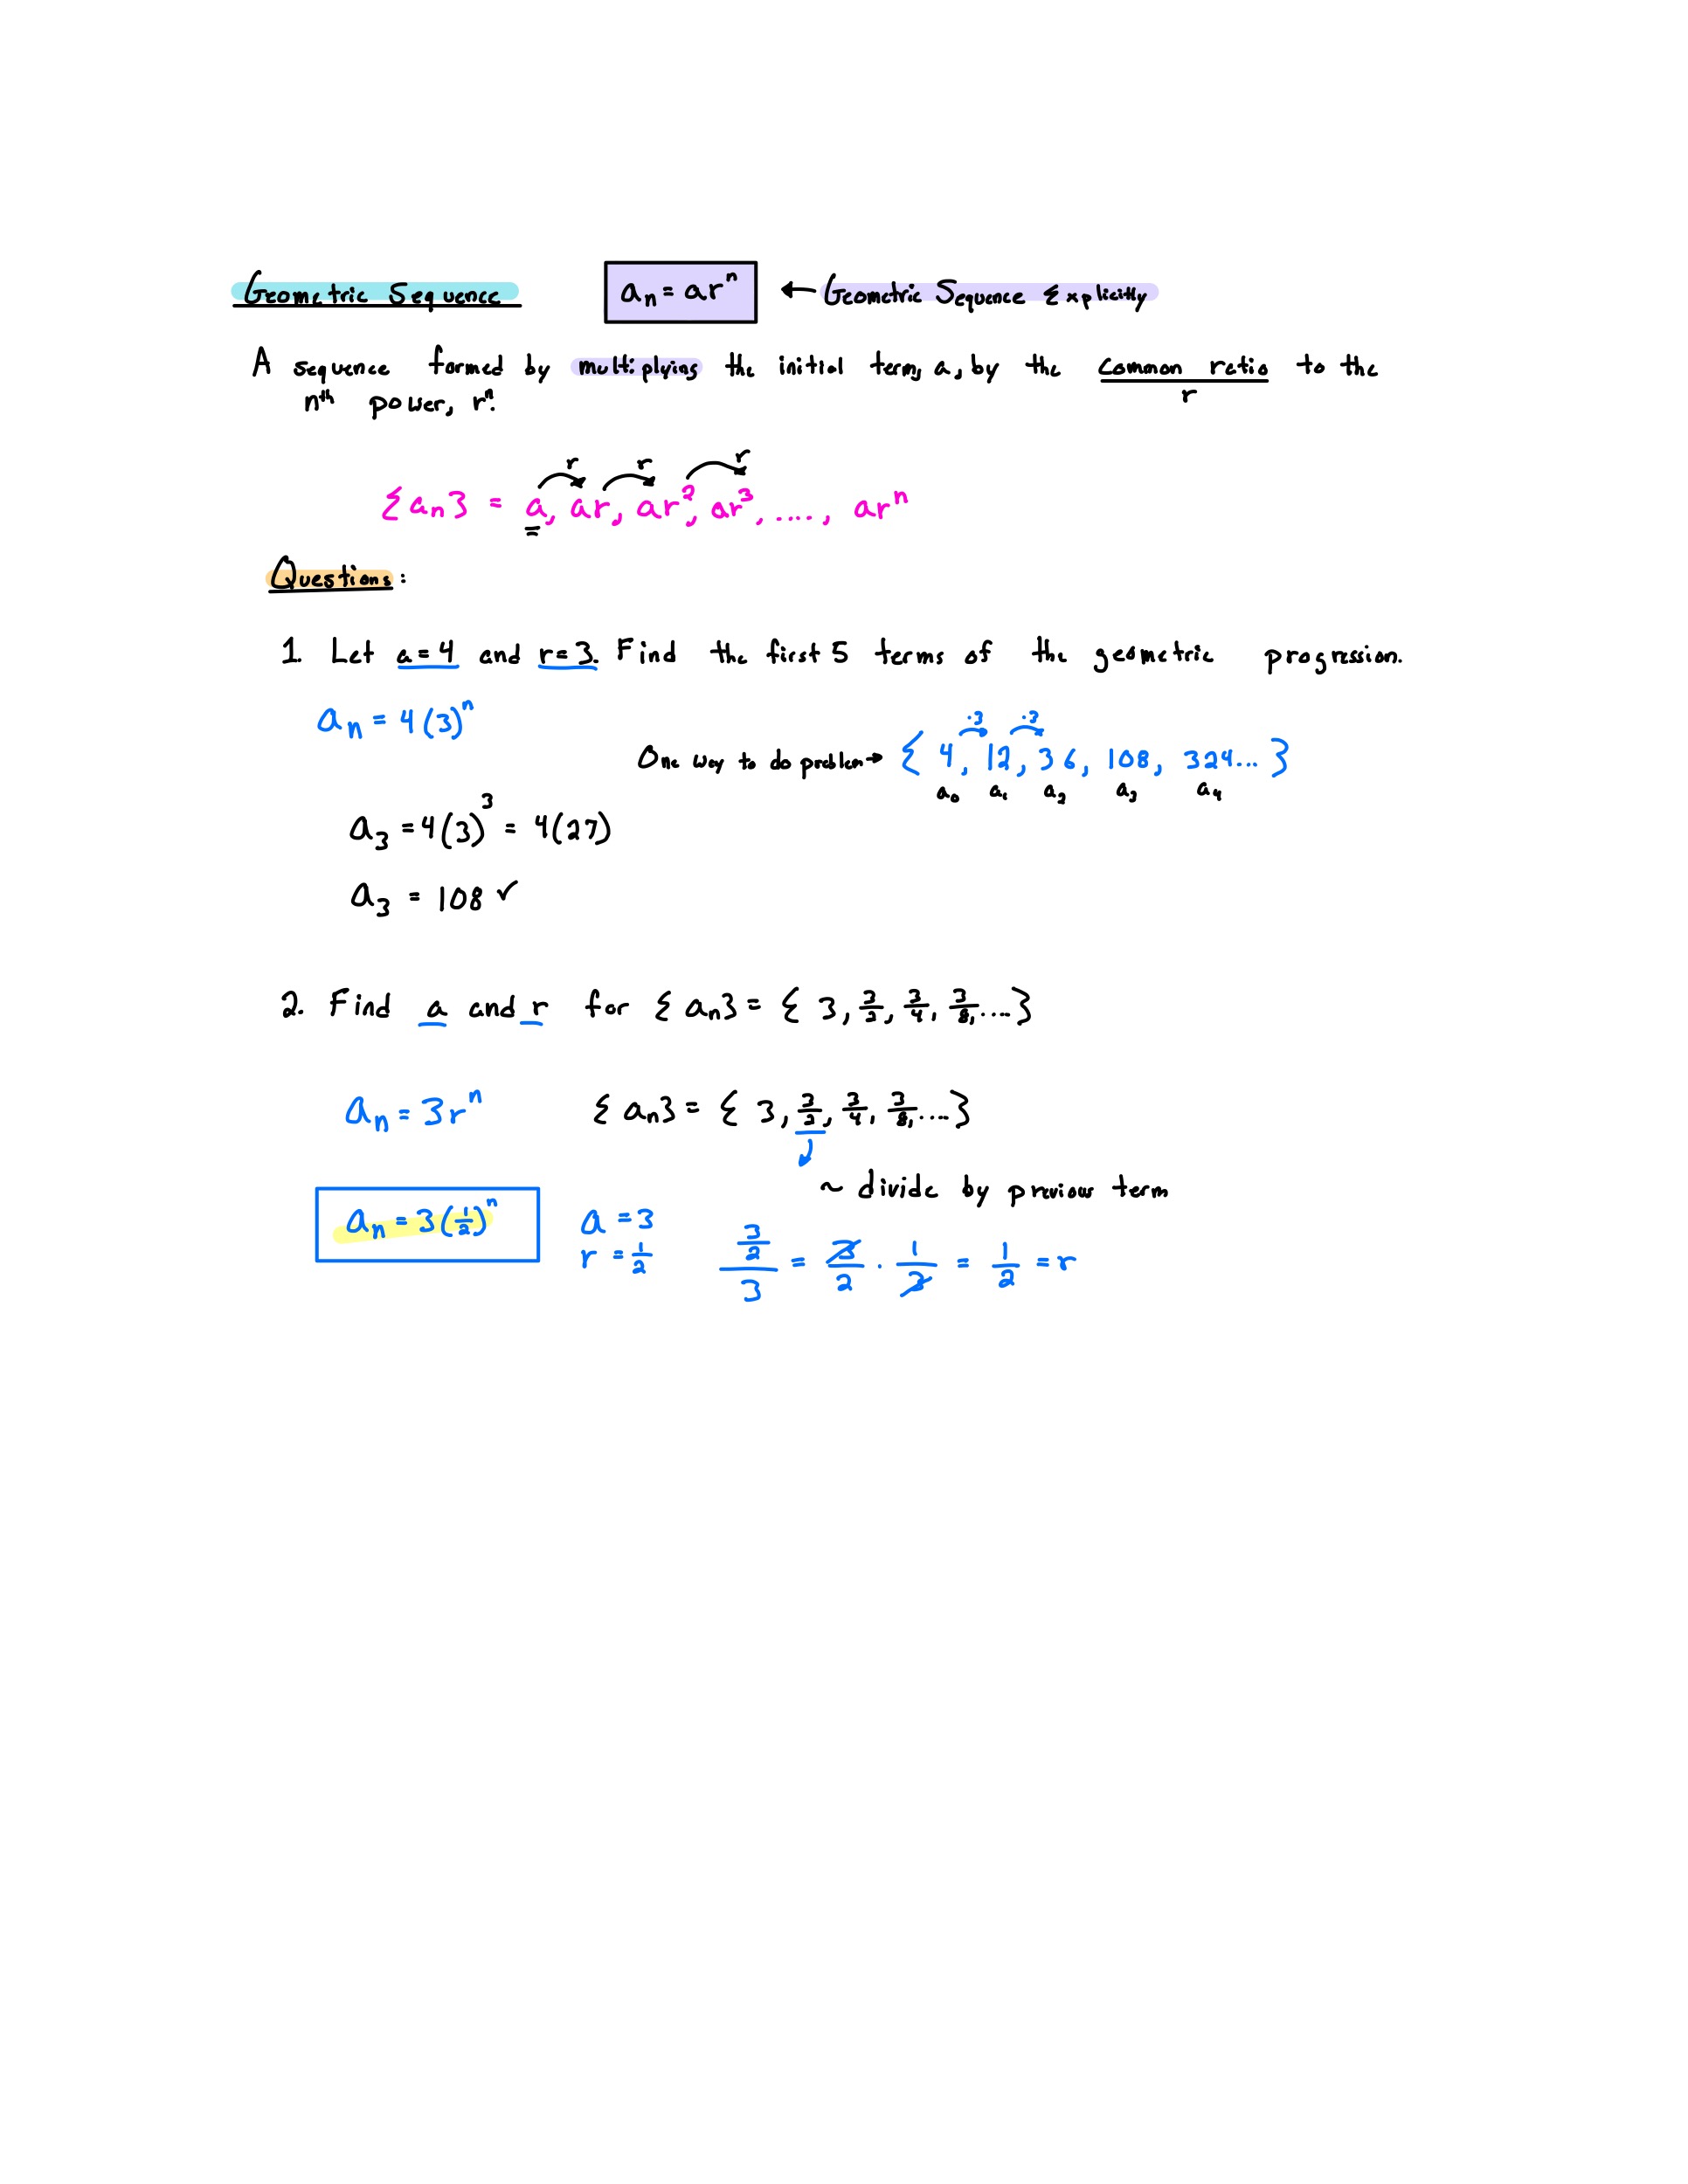 Geometric Sequence aₙ = arⁿ ← Geometric Sequence Explicitly
A sequence formed by multiplying the initial term, a, by the common ratio to the
r
nᵗʰ power, rⁿ.
r r r
{aₙ} = a, ar, ar², ar³, ...., arⁿ
Questions:
1. Let a=4 and r=3. Find the first 5 terms of the geometric progression.
aₙ = 4(3)ⁿ
·3 ·3
One way to do problem → { 4, 12, 36, 108, 324... }
a₀ a₁ a₂ a₃ a₄
a₃ = 4(3)³ = 4(27)
a₃ = 108 ✓
2. Find a and r for {aₙ} = { 3, 3/2, 3/4, 3/8, ....}
aₙ = 3rⁿ {aₙ} = { 3, 3/2, 3/4, 3/8, ....}
~ divide by previous term
aₙ = 3(1/2)ⁿ a = 3
r = 1/2
3/2 / 3 = 3/2 · 1/3 = 1/2 = r